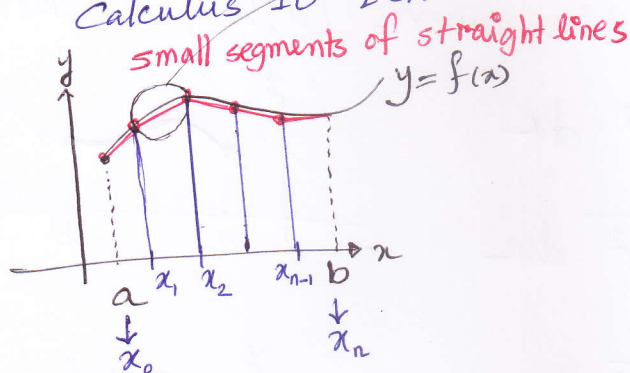 Calculus
small segments of straight lines
y
y = f(x)
x
x₁ x₂ xₙ₋₁ b
a
↓ ↓
x₀ xₙ